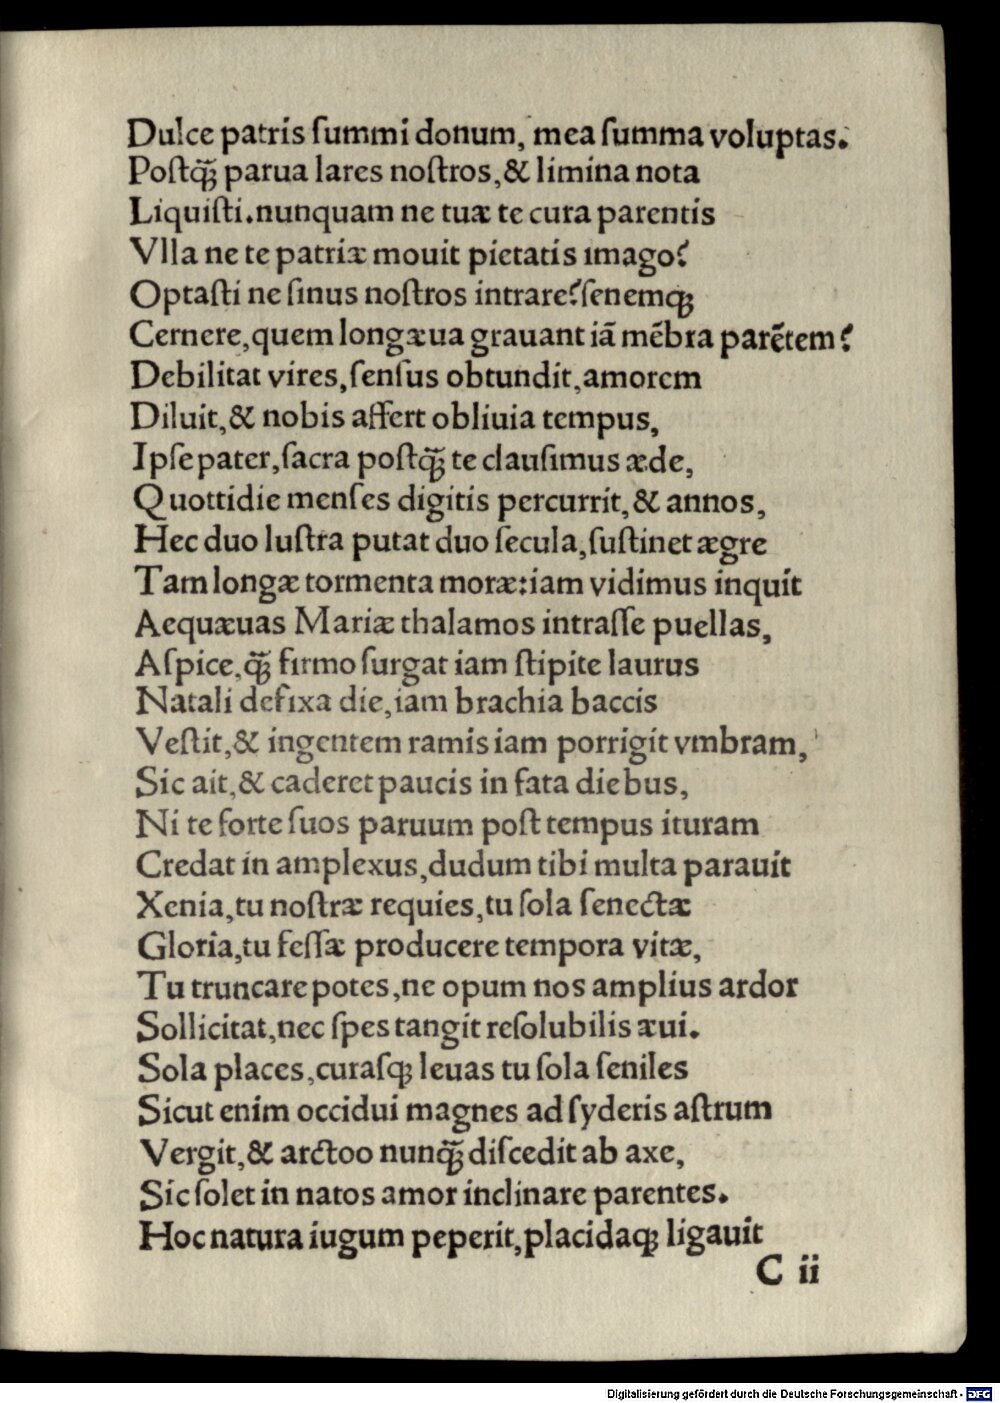 Dulce patris ſummi donum, mea ſumma voluptas.
Poſtꝙ̃ parua lares noſtros, & limina nota
Liquiſti. nunquam ne tuæ te cura parentis
Vlla ne te patriæ mouit pietatis imago?
Optaſti ne ſinus noſtros intrare? ſenemqꝫ
Cernere, quem longæua grauant iã mẽbra parẽtem?
Debilitat vires, ſenſus obtundit, amorem
Diluit, & nobis affert obliuia tempus,
Ipſe pater, ſacra poſtꝙ̃ te clauſimus æde,
Quottidie menſes digitis percurrit, & annos,
Hec duo luſtra putat duo ſecula, ſuſtinet ægre
Tam longæ tormenta moræ: iam vidimus inquit
Aequæuas Mariæ thalamos intraſſe puellas,
Aſpice, ꝙ̃ firmo ſurgat iam ſtipite laurus
Natali defixa die, iam brachia baccis
Veſtit, & ingentem ramis iam porrigit vmbram,
Sic ait, & caderet paucis in fata diebus,
Ni te forte ſuos paruum poſt tempus ituram
Credat in amplexus, dudum tibi multa parauit
Xenia, tu noſtræ requies, tu ſola ſenectæ
Gloria, tu feſſæ producere tempora vitæ,
Tu truncare potes, ne opum nos amplius ardor
Sollicitat, nec ſpes tangit reſolubilis æui.
Sola places, curaſqꝫ leuas tu ſola ſeniles
Sicut enim occidui magnes ad ſyderis aſtrum
Vergit, & arctoo nunꝙ̃ diſcedit ab axe,
Sic ſolet in natos amor inclinare parentes.
Hoc natura iugum peperit, placidaqꝫ ligauit
C ii
Digitalisierung gefördert durch die Deutsche Forschungsgemeinschaft - DFG